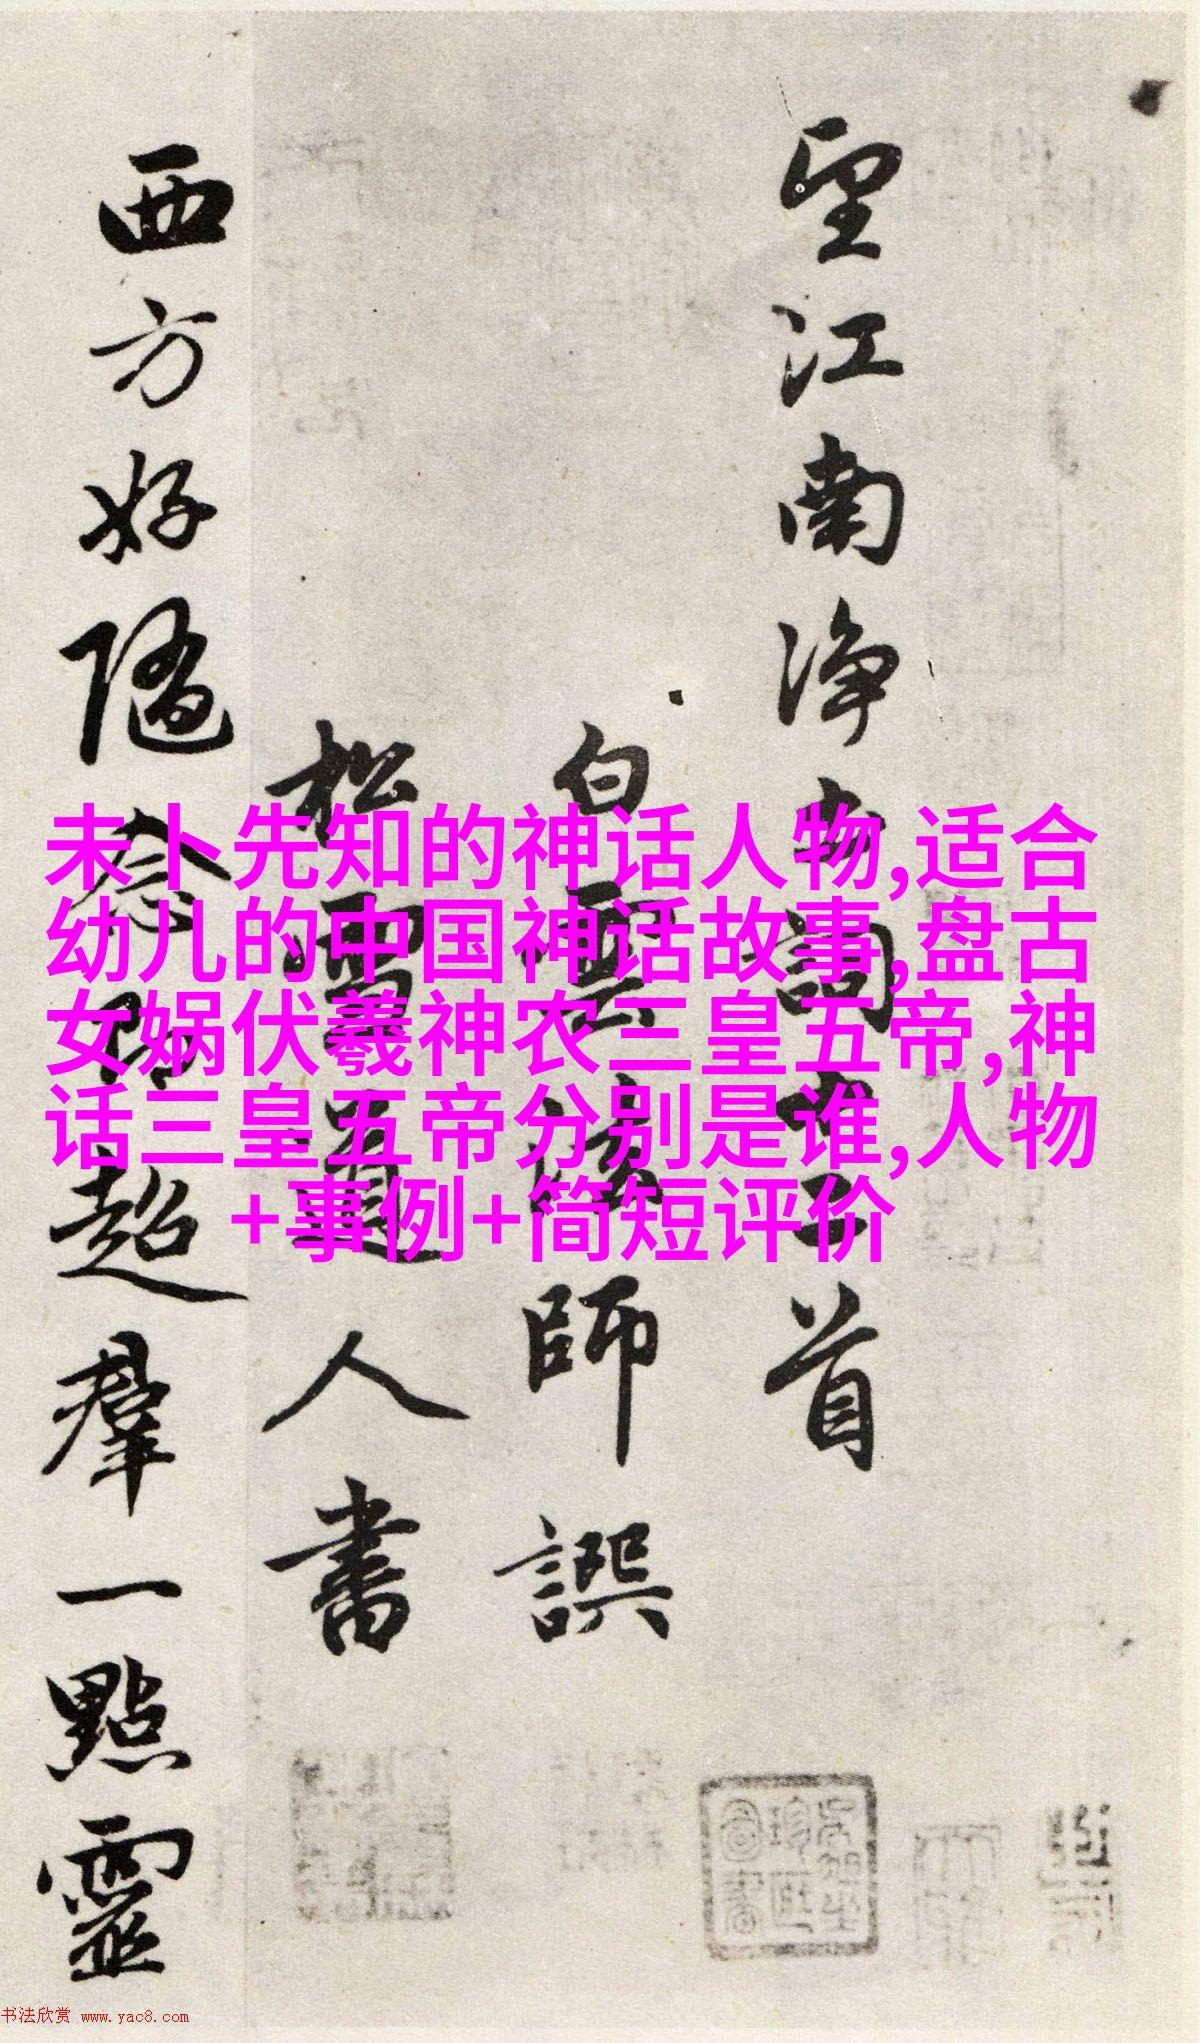 望江南淨土詞十二首
白雲法師譔
松雪道人書
西方好隨念即超羣一點靈
未卜先知的神话人物,适合
幼儿的中国神话故事,盘古
女娲伏羲神农三皇五帝,神
话三皇五帝分别是谁,人物
+事例+简短评价
书法欣赏 www.yac8.com